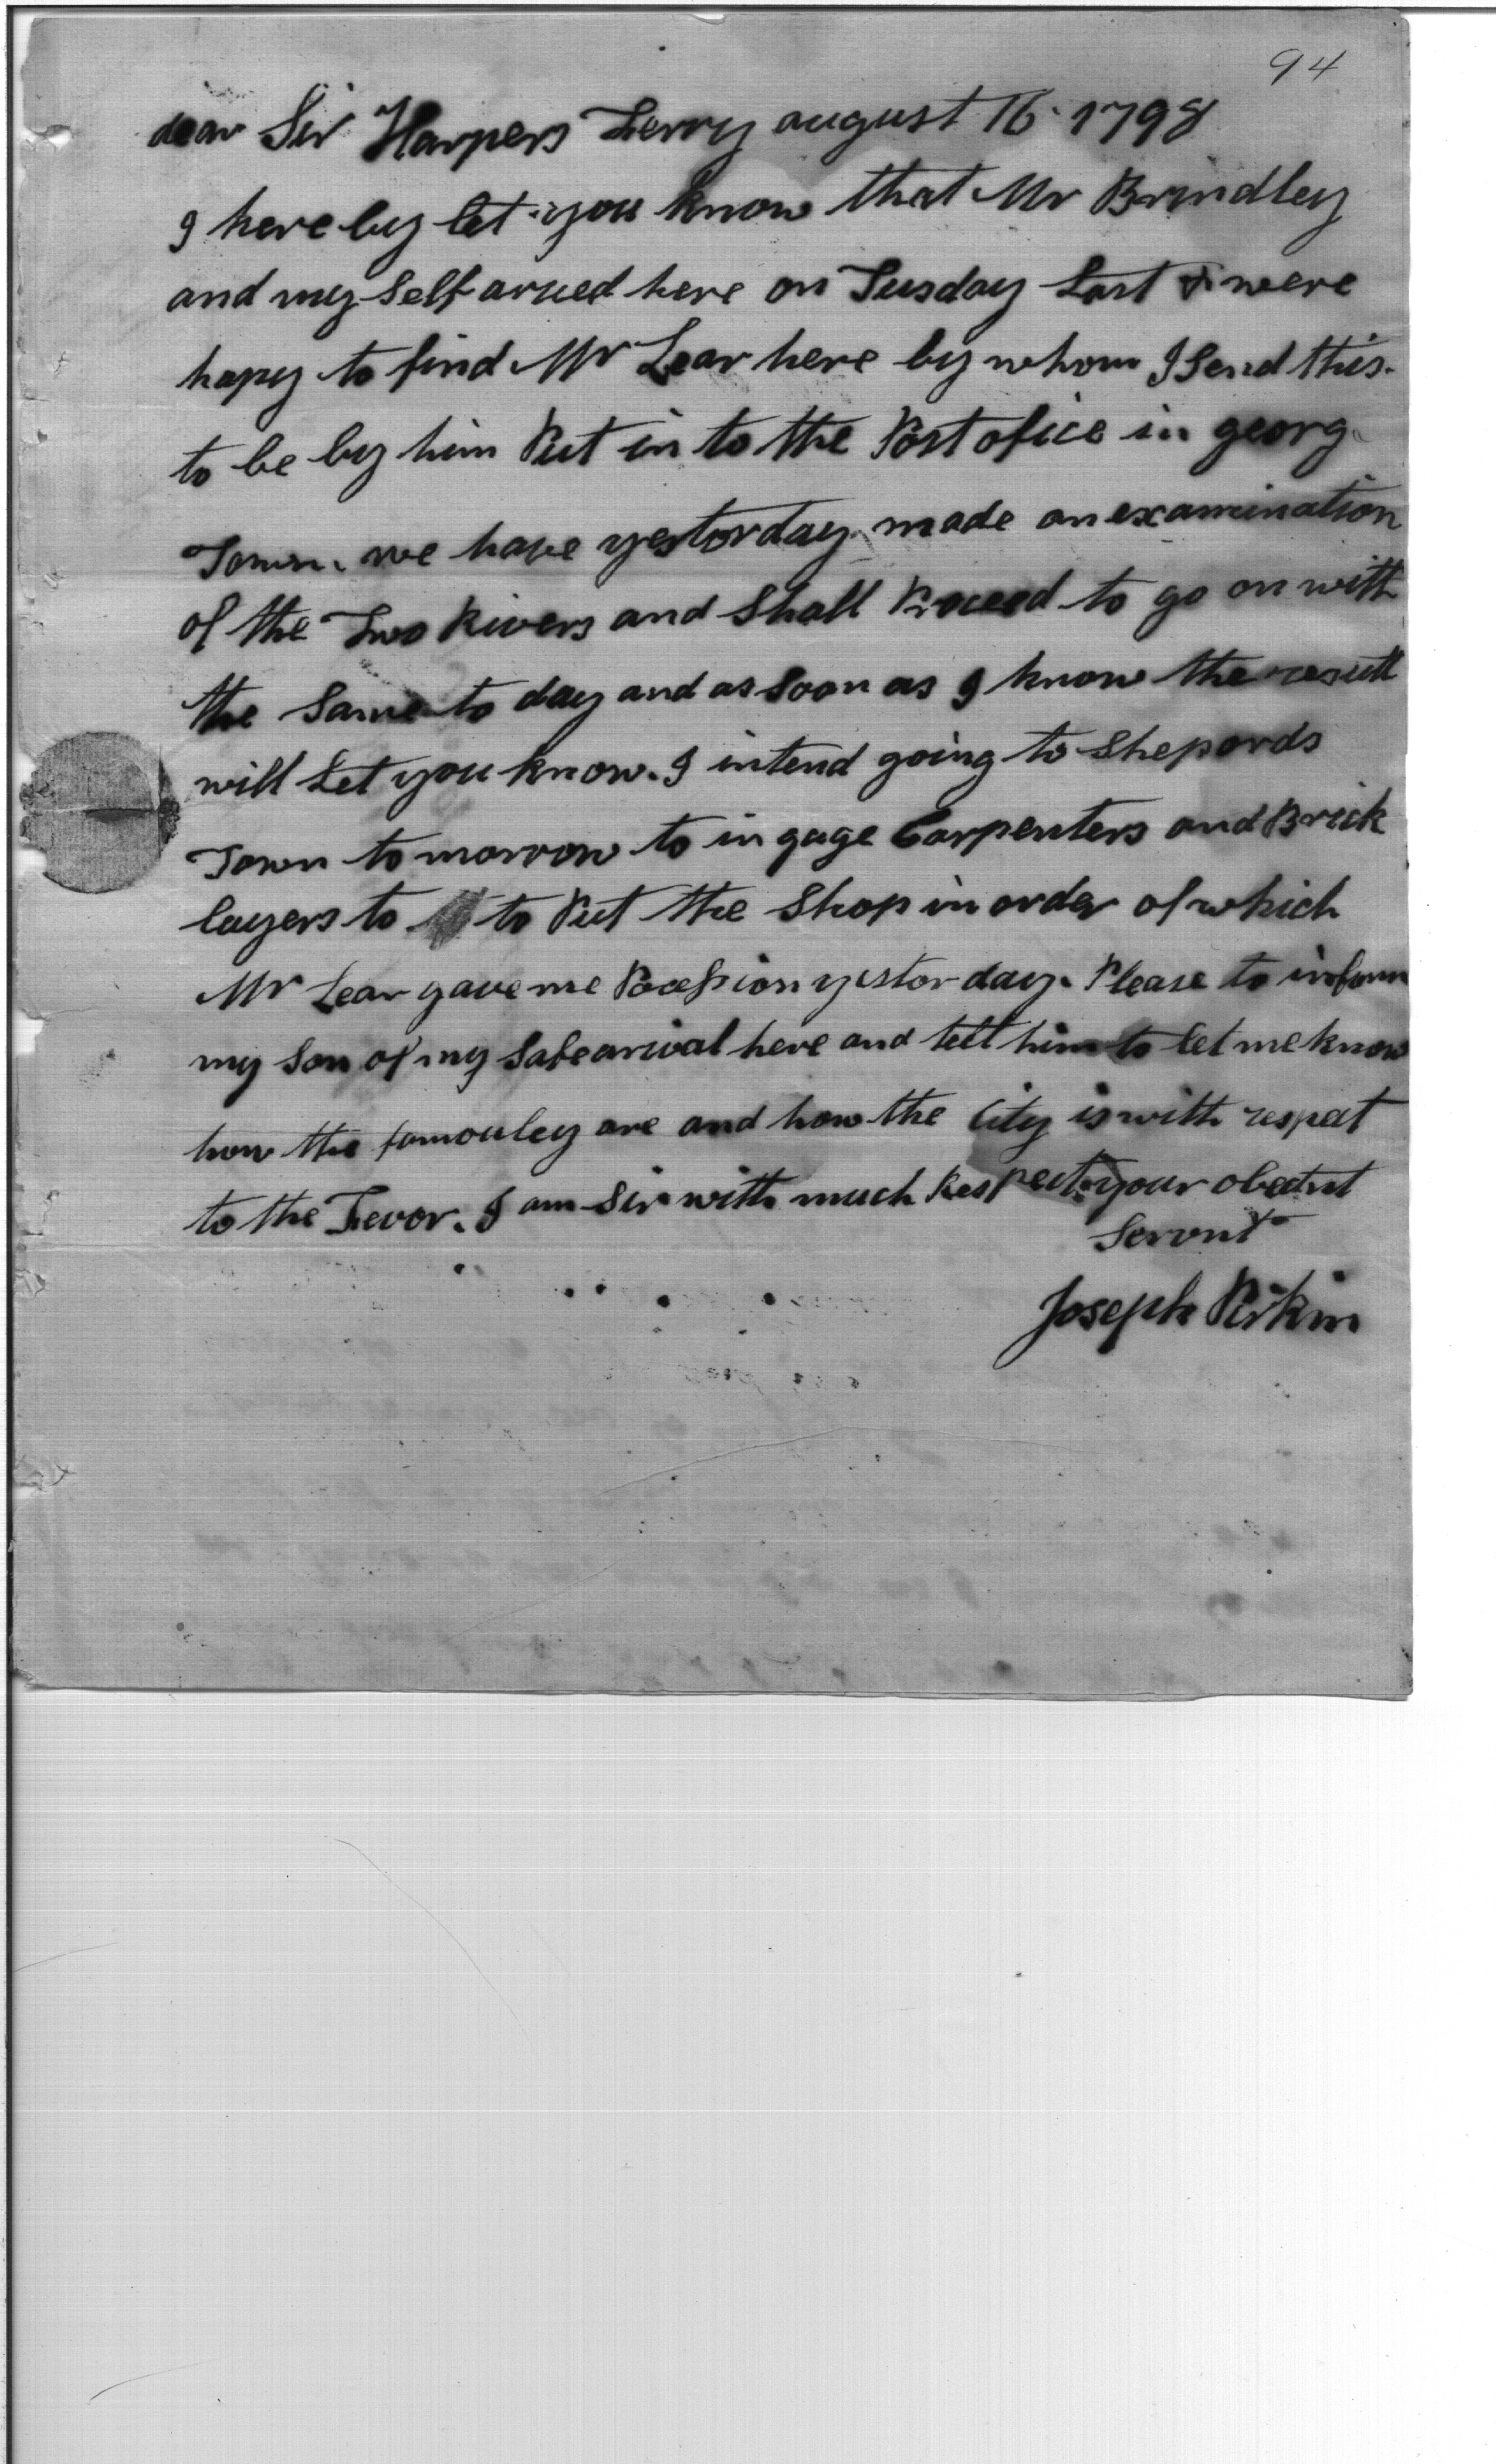 94
dear Sir Harpers Ferry august 16 1798
I here by let you know that Mr Brindley
and my self arued here on Tusday Last & were
hapy to find Mr Lear here by whom I Send this
to be by him Put in to the Post ofice in georg
Town. we have yestorday made an examination
of the Two Rivers and Shall Proceed to go on with
the Same to day and as Soon as I know the result
will Let you know. I intend going to Shepards
Town to morrow to in gage Carpenters and Brick
layers to to Put the Shop in order of which
Mr Lear gave me Pocession yistor day. Please to inform
my Son of my Safe arival here and tell him to let me know
how the famouley are and how the City is with respect
to the Fevor. I am Sir with much Respect your obedint
Servnt
Joseph Perkin